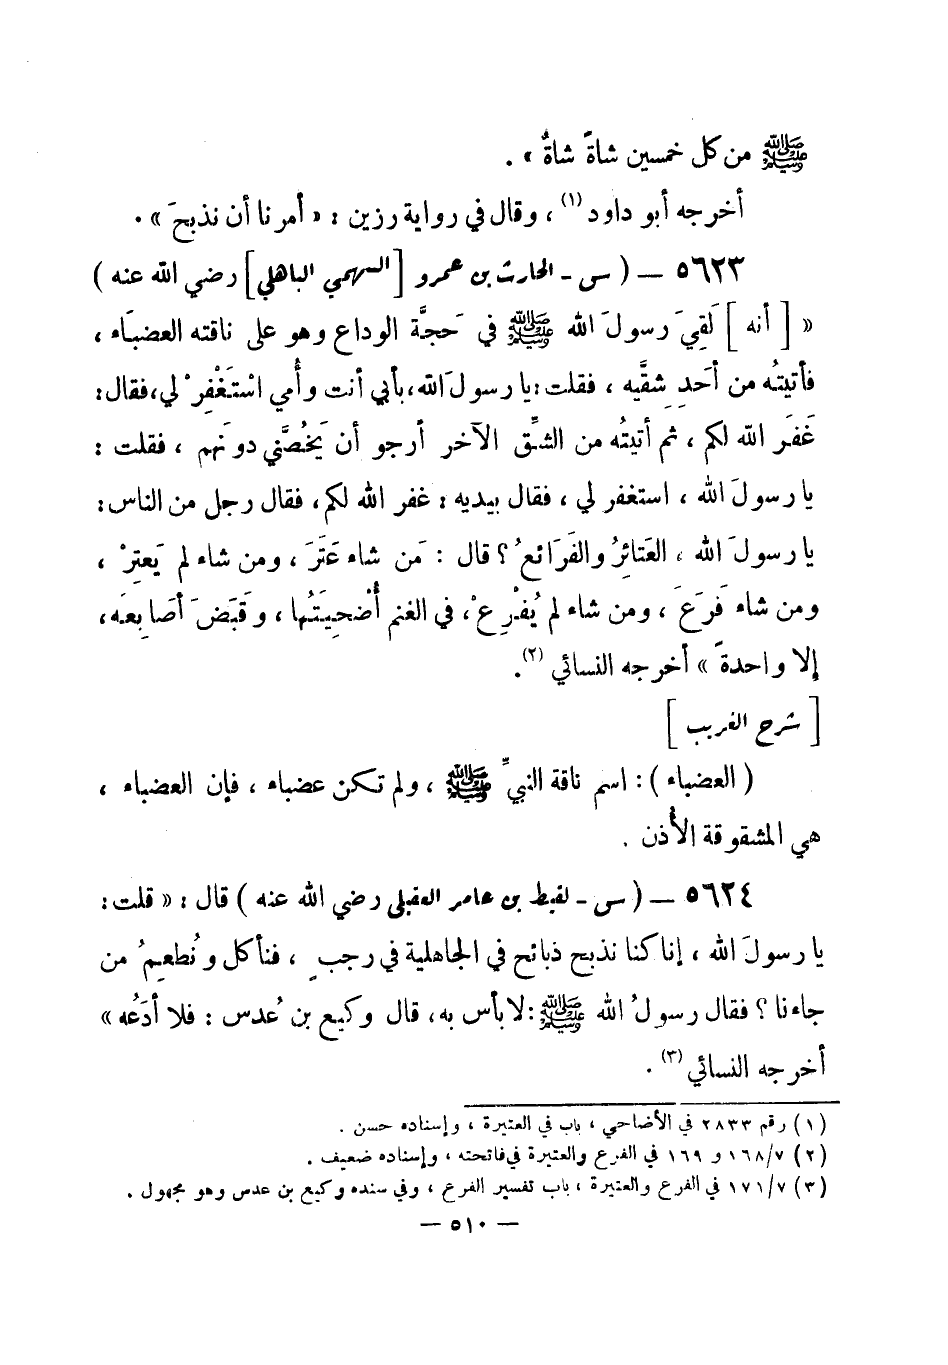 ﷺ من كل خمسين شاةً شاةٌ » .
أخرجه أبو داود (١) ، وقال في رواية رزين : « أمرنا أن نذبحَ » .
٥٦٢٣ — ( س - الحارث بن عمرو [السهمي الباهلي] رضي الله عنه )
« [ أنه ] لَقِيَ رسولَ الله ﷺ في حَجَّة الوداع وهو على ناقته العضبَاء ،
فأتيتُه من أحَدِ شقَّيه ، فقلت : يا رسولَ الله ، بأبي أنت وأُمي اسْتَغْفِرْ لي ، فقال :
غَفَر الله لكم ، ثم أتيتُه من الشِّق الآخر أرجو أن يَخُصَّني دونَهم ، فقلت :
يا رسولَ الله ، استغفر لي ، فقال بيديه : غفر الله لكم ، فقال رجل من الناس :
يا رسولَ الله ، العَتائِرُ والفَرَائعُ ؟ قال : مَن شاء عَتَرَ ، ومن شاء لم يَعتِرْ ،
ومن شاء فَرَعَ ، ومن شاء لم يُفْرِعْ ، في الغنم أُضْحِيَتُها ، وقَبَضَ أصَابِعَه ،
إلا واحدةً » أخرجه النسائي (٢) .
[ شرح الغريب ]
( العضباء ) : اسم ناقة النبيِّ ﷺ ، ولم تكن عضباء ، فإن العضباء ،
هي المشقوقة الأُذن .
٥٦٢٤ — ( س - لقيط بن عامر العقيلي رضي الله عنه ) قال : « قلت :
يا رسولَ الله ، إنا كنا نذبح ذبائح في الجاهلية في رجبٍ ، فنأكل ونُطعِمُ من
جاءنا ؟ فقال رسولُ الله ﷺ : لا بأس به ، قال وكيع بن عُدس : فلا أدَعُه »
أخرجه النسائي (٣) .
(١) رقم ٢٨٣٣ في الأضاحي ، باب في العتيرة ، وإسناده حسن .
(٢) ١٦٨/٧ و ١٦٩ في الفرع والعتيرة في فاتحته ، وإسناده ضعيف .
(٣) ١٧١/٧ في الفرع والعتيرة ، باب تفسير الفرع ، وفي سنده وكيع بن عدس وهو مجهول .
— ٥١٠ —